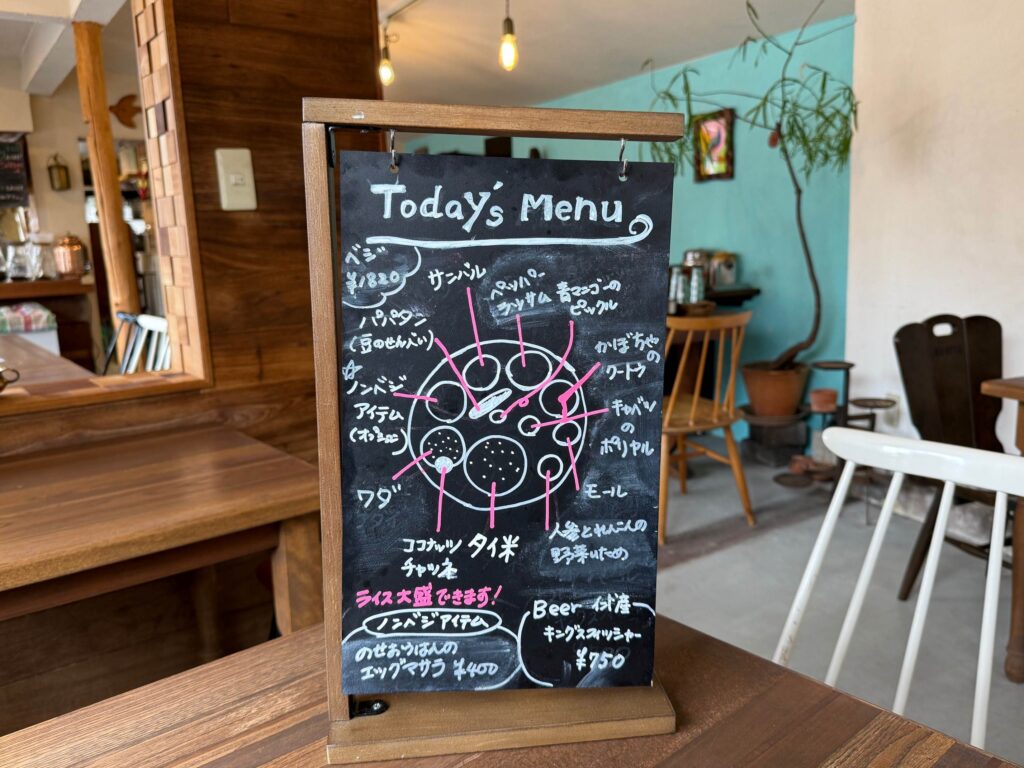 Today's Menu
ベジ
¥1820
サンバル
ペッパー
ラッサム
青マンゴーの
ピックル
パパダン
(豆のせんべい)
かぼちゃの
クートゥ
☆
ノンベジ
アイテム
キャベツ
の
ポリヤル
ワダ
モール
ココナッツ
チャツネ
タイ米
人参とれんこんの
野菜いため
ライス大盛できます!
ノンベジアイテム
のせおうはんの
エッグマサラ ¥400
Beer インド産
キングスフィッシャー
¥750